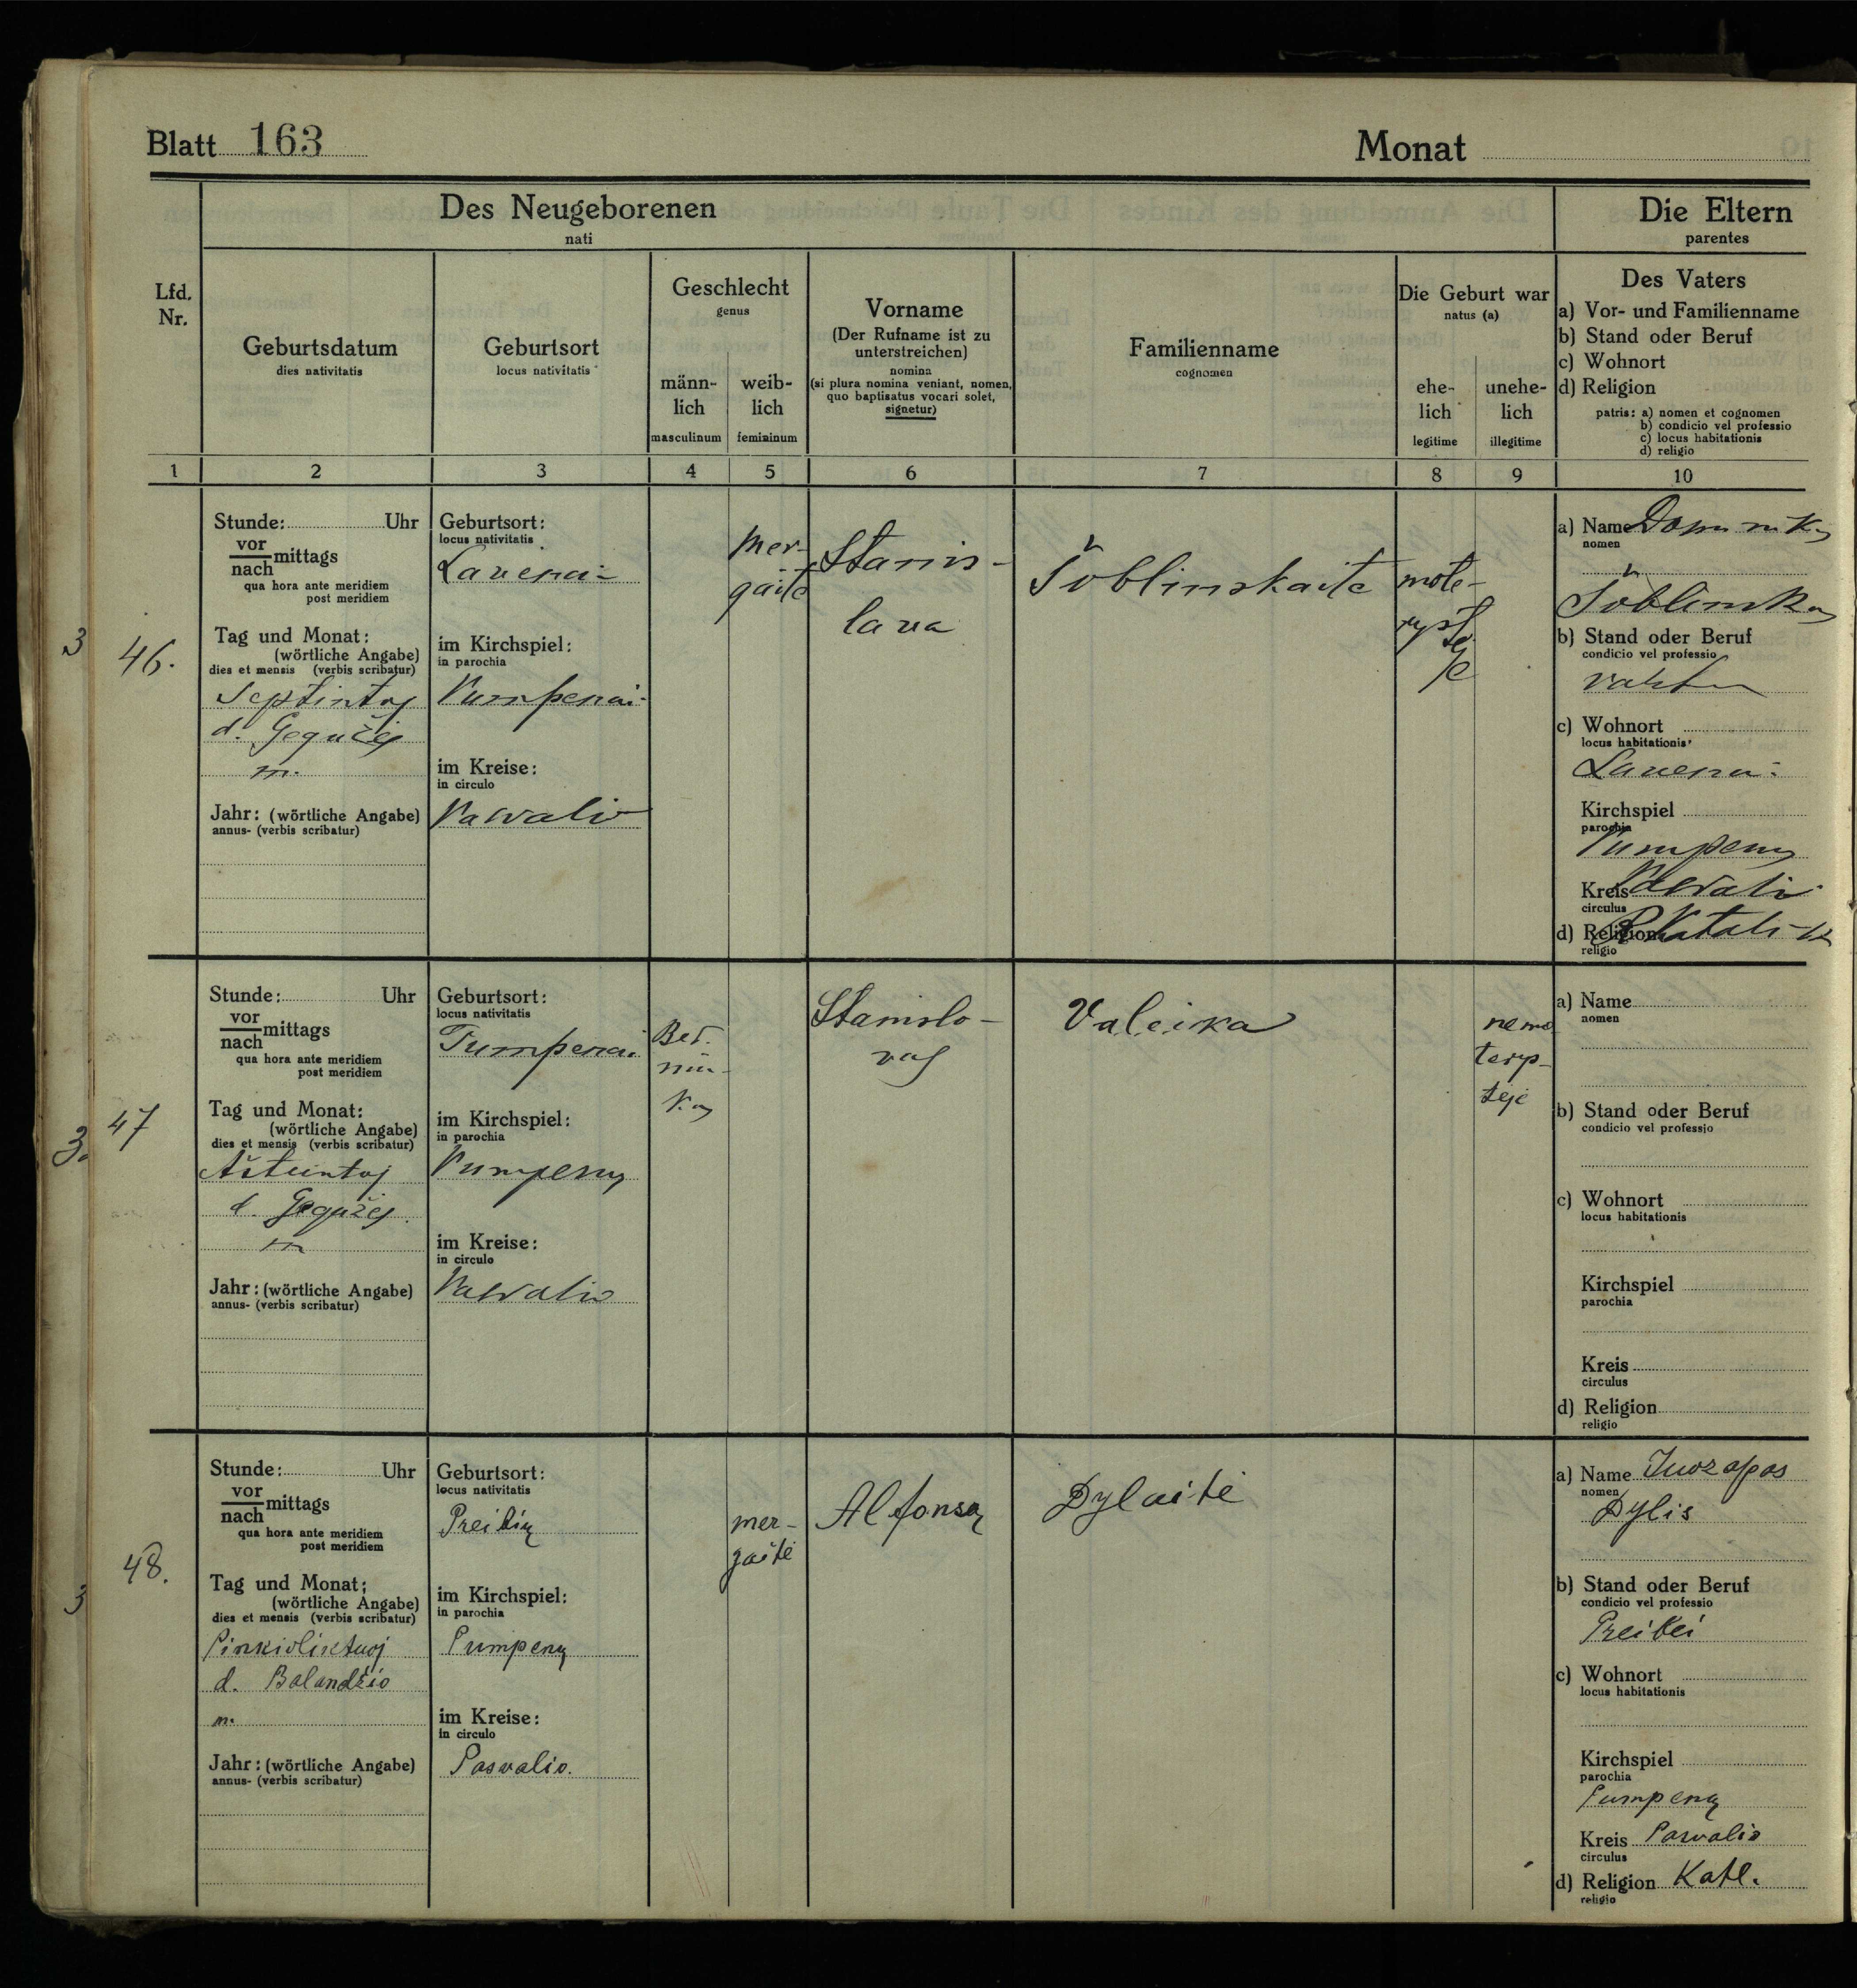 Blatt 163
Monat
Des Neugeborenen
nati
Die Eltern
parentes
Lfd.
Nr.
Geburtsdatum
dies nativitatis
Geburtsort
locus nativitatis
Geschlecht
genus
männ-
lich
masculinum
weib-
lich
femininum
Vorname
(Der Rufname ist zu
unterstreichen)
nomina
(si plura nomina veniant, nomen,
quo baptisatus vocari solet,
signetur)
Familienname
cognomen
Die Geburt war
natus (a)
ehe-
lich
legitime
unehe-
lich
illegitime
Des Vaters
a) Vor- und Familienname
b) Stand oder Beruf
c) Wohnort
d) Religion
patris: a) nomen et cognomen
b) condicio vel professio
c) locus habitationis
d) religio
1 2 3 4 5 6 7 8 9 10
3
46.
Stunde: Uhr
vor
nach mittags
qua hora ante meridiem
post meridiem
Tag und Monat:
(wörtliche Angabe)
dies et mensis (verbis scribatur)
Septintoj
d. Gegužėj
m.
Jahr: (wörtliche Angabe)
annus- (verbis scribatur)
Geburtsort:
locus nativitatis
Lavenai
im Kirchspiel:
in parochia
Pumpenai
im Kreise:
in circulo
Pasvalio
Mer-
gaitė
Stanis-
lava
Šoblinskaite
mote-
ryst
ėje
a) Name Dominikas
nomen
Šoblinskas
b) Stand oder Beruf
condicio vel professio
c) Wohnort
locus habitationis
Lavenai
Kirchspiel
parochia
Pumpenų
Kreis Pasvalio
circulus
d) Religion R Katalik
religio
3.
47
Stunde: Uhr
vor
nach mittags
qua hora ante meridiem
post meridiem
Tag und Monat:
(wörtliche Angabe)
dies et mensis (verbis scribatur)
Aštuntoj
d. Gegužėj
m
Jahr: (wörtliche Angabe)
annus- (verbis scribatur)
Geburtsort:
locus nativitatis
Pumpenai
im Kirchspiel:
in parochia
Pumpenų
im Kreise:
in circulo
Pasvalio
Ber.
niu-
kas
Stanislo-
vas
Valeika
nemo
teryp-
tėje
a) Name
nomen
b) Stand oder Beruf
condicio vel professio
c) Wohnort
locus habitationis
Kirchspiel
parochia
Kreis
circulus
d) Religion
religio
3
48.
Stunde: Uhr
vor
nach mittags
qua hora ante meridiem
post meridiem
Tag und Monat:
(wörtliche Angabe)
dies et mensis (verbis scribatur)
Pinkioliktuoj
d. Balandžio
m.
Jahr: (wörtliche Angabe)
annus- (verbis scribatur)
Geburtsort:
locus nativitatis
Preibių
im Kirchspiel:
in parochia
Pumpenų
im Kreise:
in circulo
Pasvalio.
mer-
gaitė
Alfonsa
Dylaitė
a) Name Juozapas
nomen
Dylis
b) Stand oder Beruf
condicio vel professio
Preibei
c) Wohnort
locus habitationis
Kirchspiel
parochia
Pumpenų
Kreis Pasvalio
circulus
d) Religion Katl.
religio